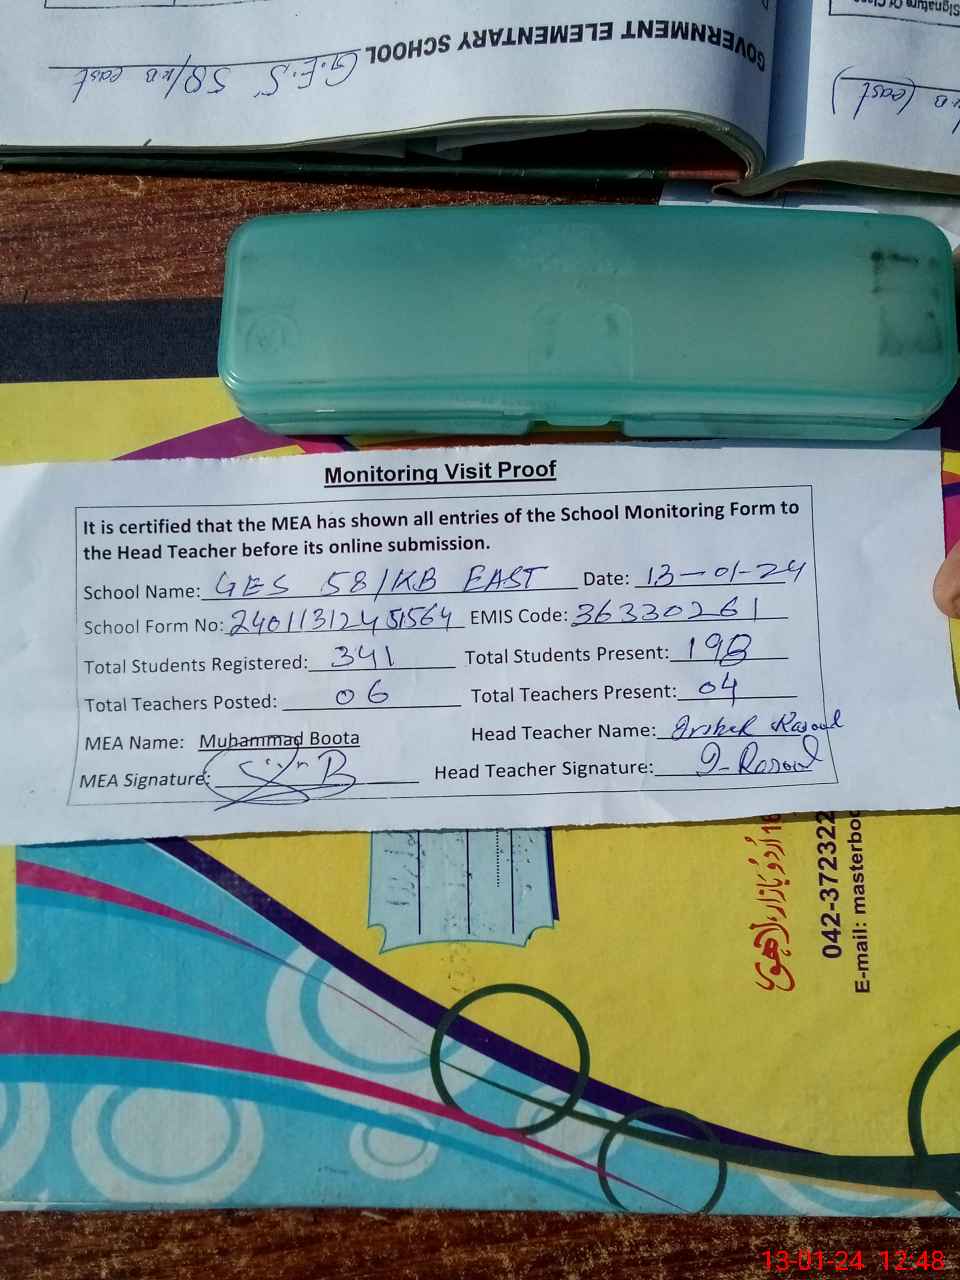 Signature Of Class
GOVERNMENT ELEMENTARY SCHOOL G.E.S 58/KB east
KB (east)
Monitoring Visit Proof
It is certified that the MEA has shown all entries of the School Monitoring Form to
the Head Teacher before its online submission.
School Name: GES 58/KB EAST Date: 13-01-24
School Form No: 24011312451564 EMIS Code: 36330261
Total Students Registered: 341 Total Students Present: 198
Total Teachers Posted: 06 Total Teachers Present: 04
MEA Name: Muhammad Boota Head Teacher Name: Rasool
MEA Signature: Head Teacher Signature: I-Rasool
اُردُو بازار، لاہور
042-372322
E-mail: masterboo
13-01-24 12:48